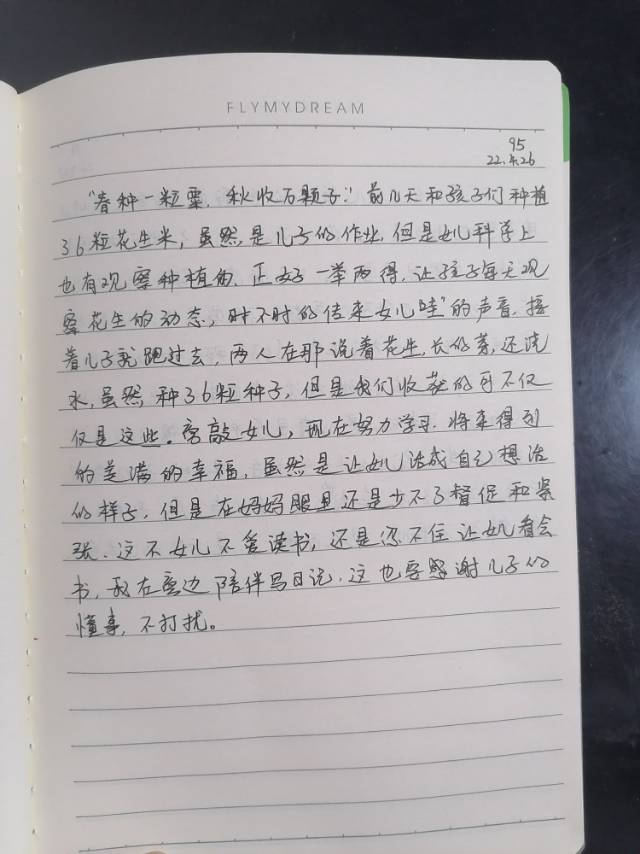 FLYMYDREAM
95
22.4.26
“春种一粒粟，秋收万颗子”前几天和孩子们种植
36粒花生米，虽然是儿子的作业，但是女儿科学上
也有观察种植的、正好一举两得，让孩子每天观
察花生的动态，时不时的传来女儿哇”的声音，接
着儿子就跑过去，两人在那说着花生，长的芽，还浇
水，虽然种36粒种子，但是我们收获的可不仅
仅是这些。旁敲女儿，现在努力学习，将来得到
的是满的幸福，虽然是让女儿活成自己想活
的样子，但是在妈妈眼里还是少不了督促和紧
张，这不女儿不爱读书，还是忍不住让女儿看会
书，我在旁边陪伴写日记，这也要感谢儿子的
懂事，不打扰。